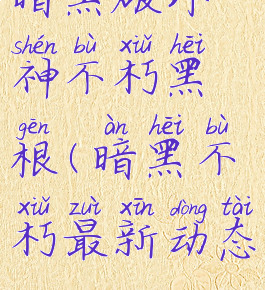 暗黑破坏
shén bù xiǔ hēi
神不朽黑
gēn àn hēi bù
根(暗黑不
xiǔ zuì xīn dòng tài
朽最新动态